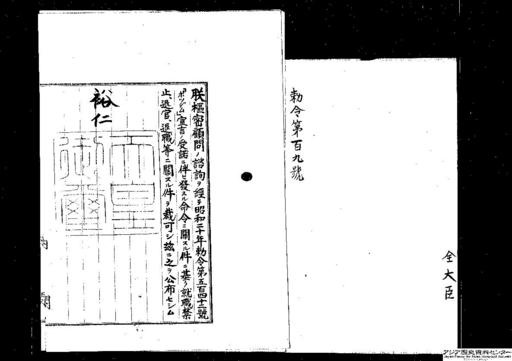 勅令第百九號
仝大臣
朕樞密顧問ノ諮詢ヲ經テ昭和二十年勅令第五百四十二號
ポツダム宣言ノ受諾ニ伴ヒ發スル命令ニ關スル件ニ基ク就職禁
止、退官、退職等ニ關スル件ヲ裁可シ茲ニ之ヲ公布セシム
裕仁
天皇
御璽
内閣
アジア歴史資料センター